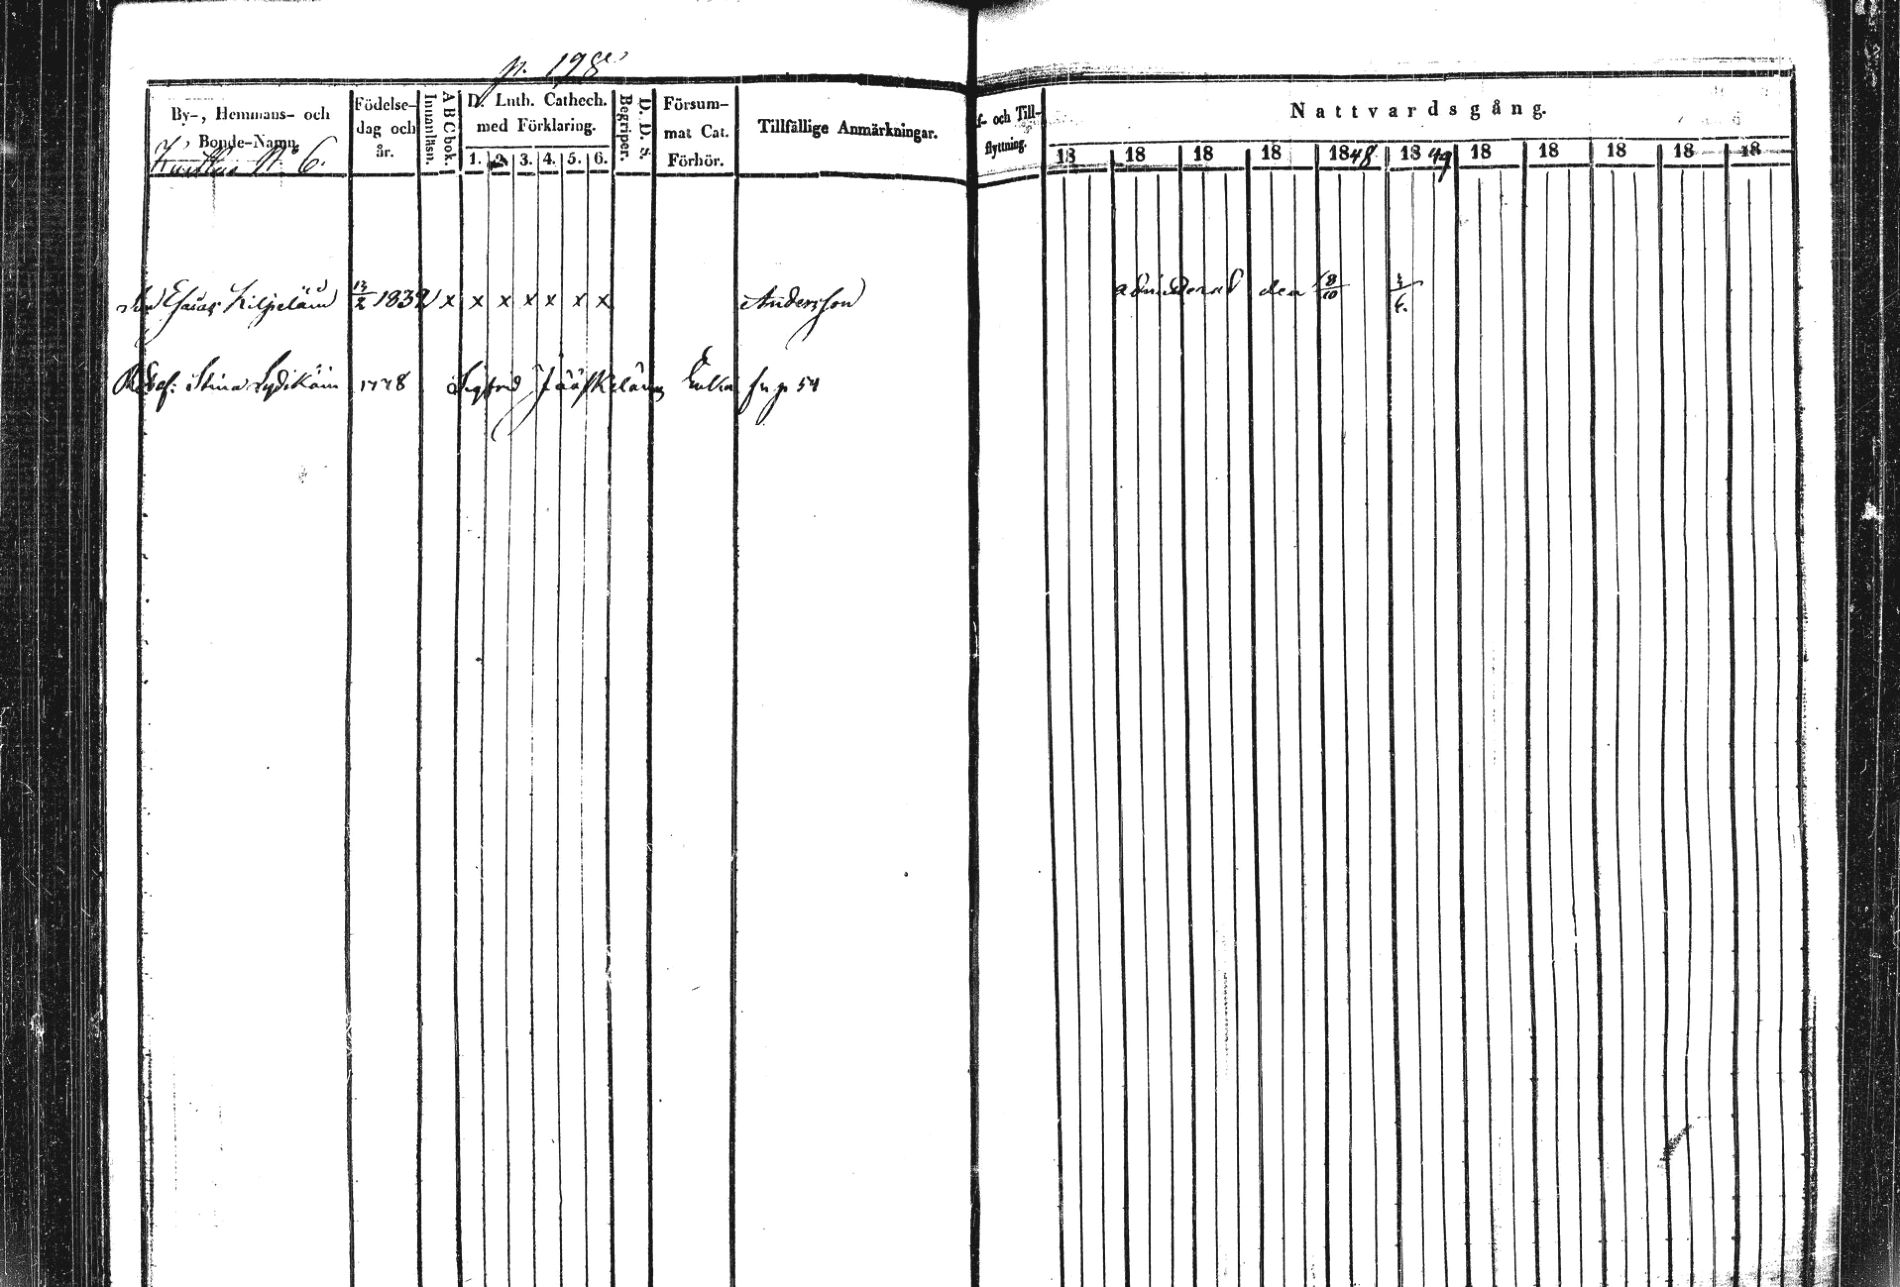 p. 198
By-, Hemmans- och
Bonde-Namn.
N:o 6.
Födelse-
dag och
år.
ABCbok.
Innanläsn.
D. Luth. Cathech.
med Förklaring.
1. 2. 3. 4. 5. 6.
D. D. s.
Begriper.
Försum-
mat Cat.
Förhör.
Tillfällige Anmärkningar.
f- och Till-
flyttning.
Nattvardsgång.
18 18 18 18 1848 1849 18 18 18 18 18
Esaias Kiljeläin 13/2 1832 x x x x x x x Andersson admitterad den 8/10 3/6.
Stina Lydikäin 1778 Sigfrid Jääskeläin Enka p 54